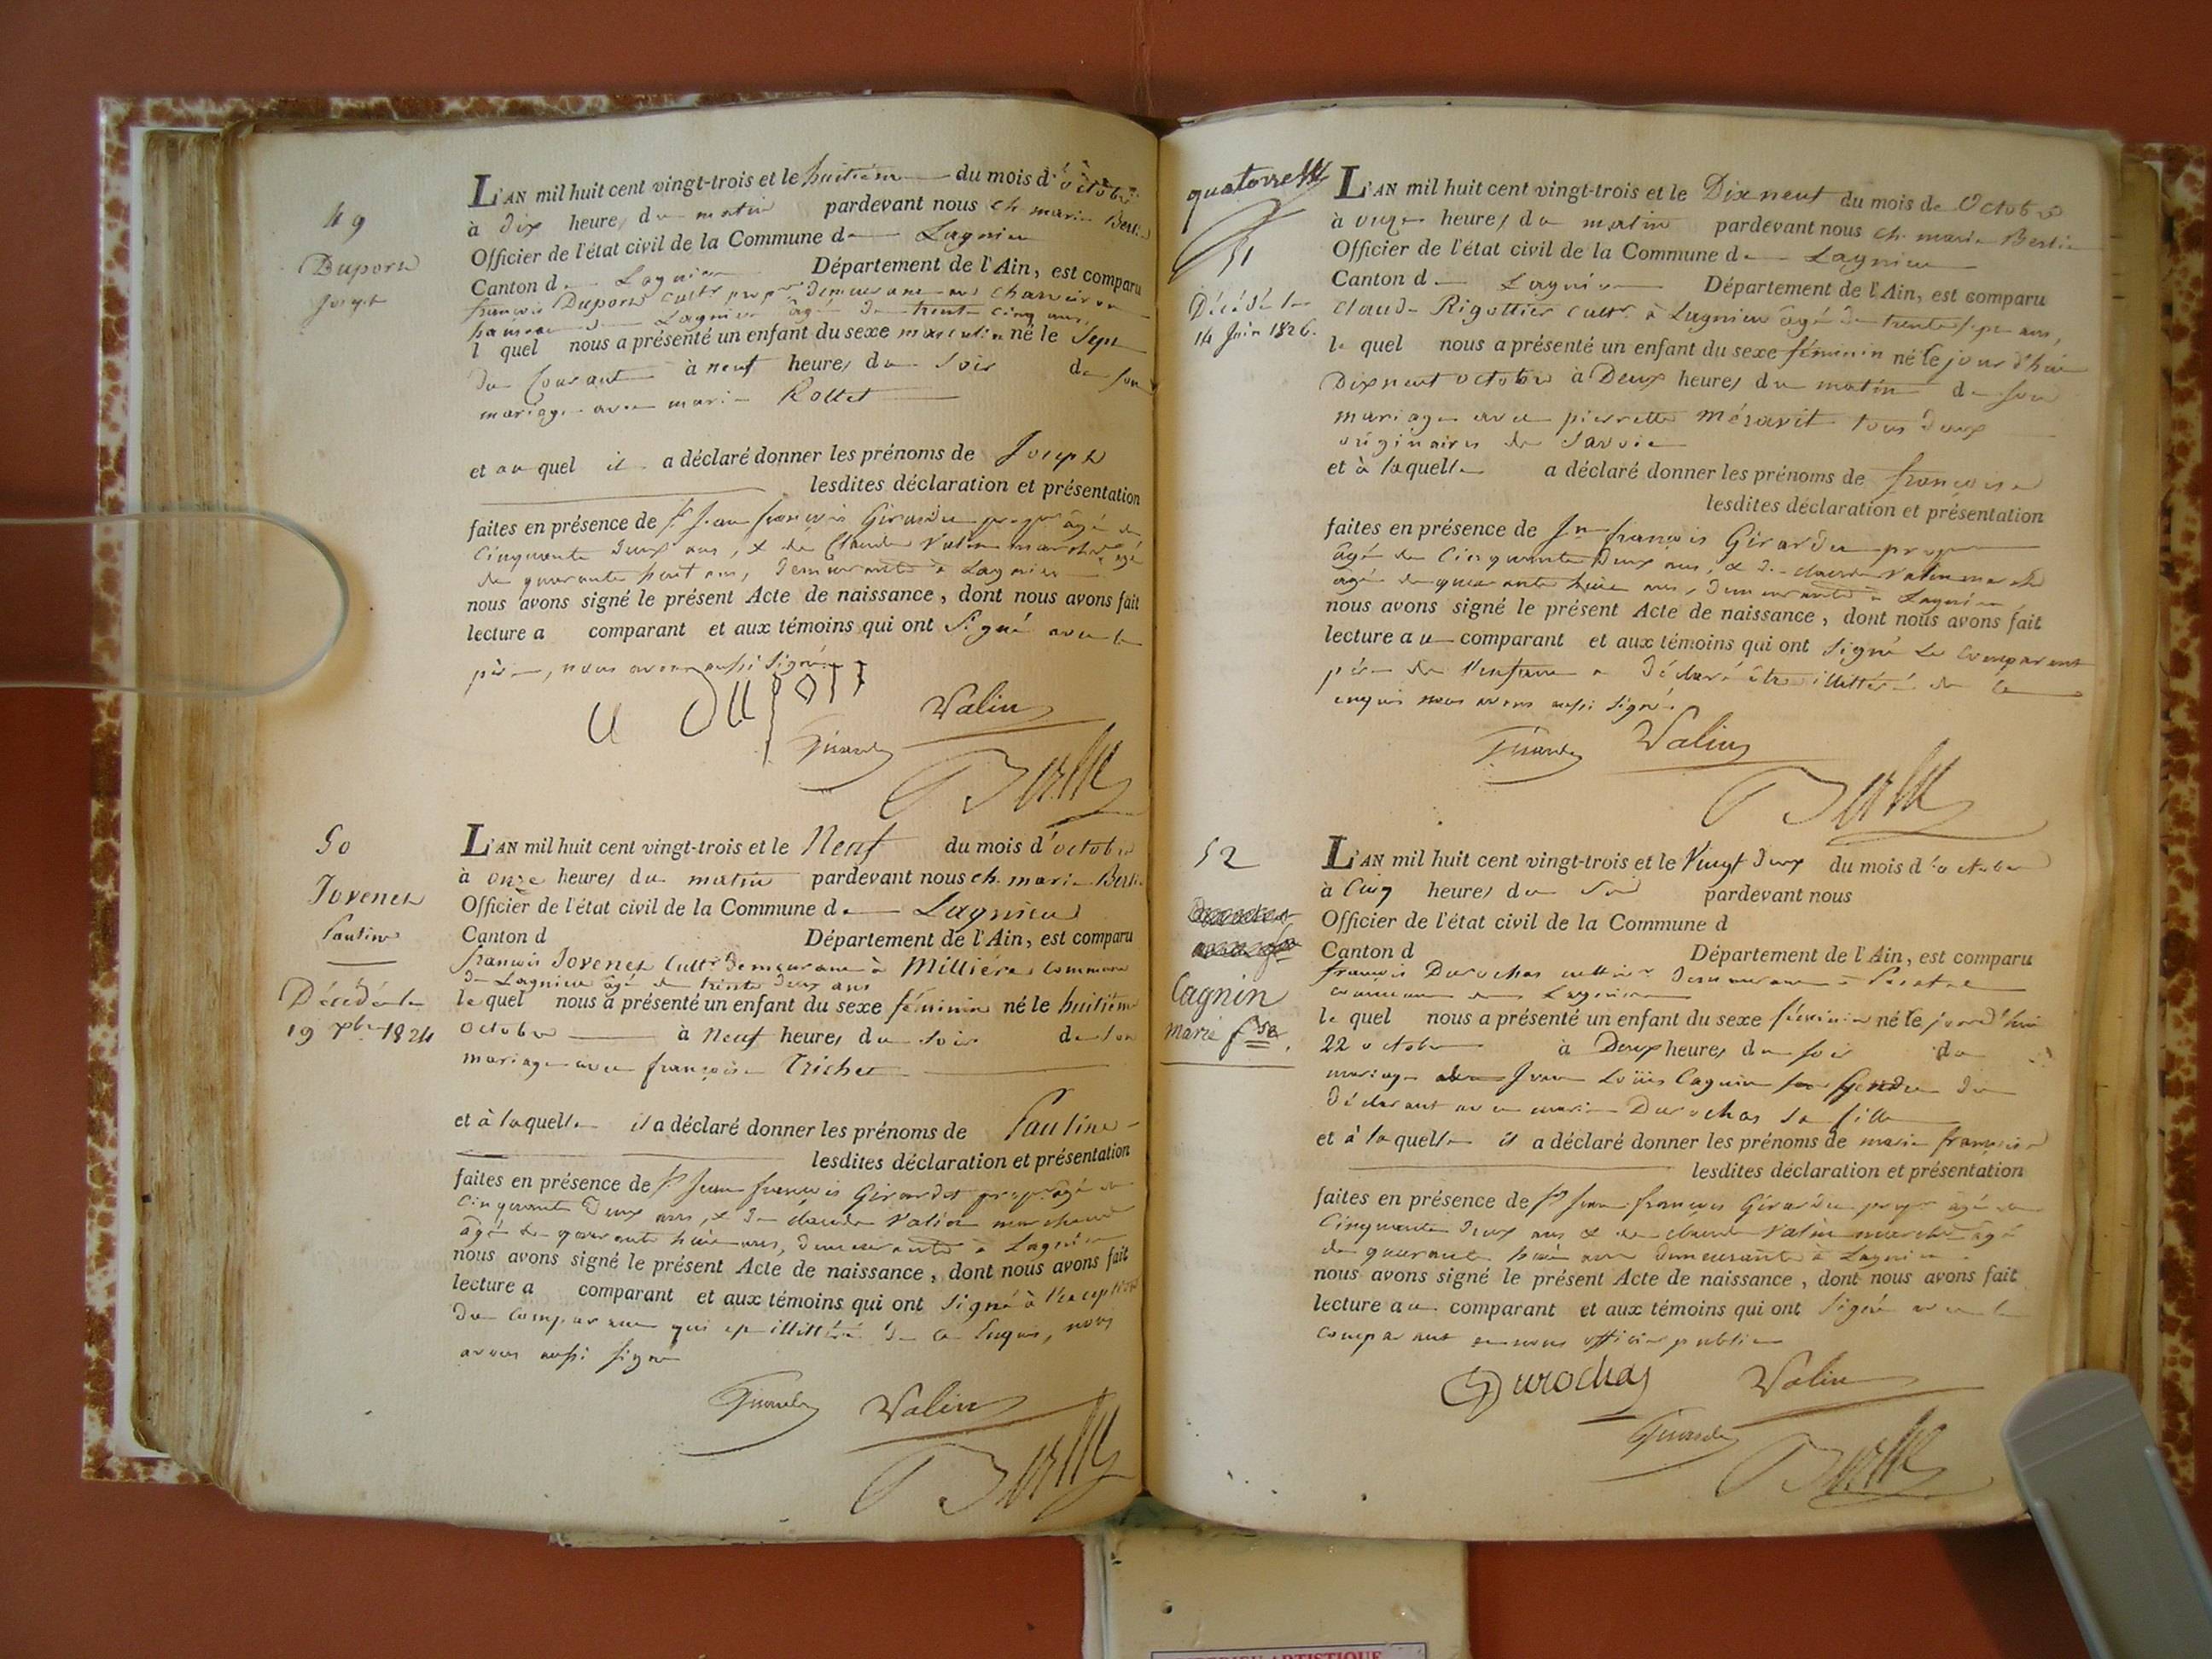 49
Duport
Joseph
L'AN mil huit cent vingt-trois et le huitième du mois d'octobre
à dix heures du matin pardevant nous ch. marie Berlie
Officier de l'état civil de la Commune de Lagnieu
Canton de Lagnieu Département de l'Ain, est comparu
françois Duport cultr propre demeurant au
hameau de Lagnieu âgé de trente cinq ans,
lequel nous a présenté un enfant du sexe masculin né le sept
du courant à neuf heures du soir de son
mariage avec marie Rollet
et auquel il a déclaré donner les prénoms de Joseph
lesdites déclaration et présentation
faites en présence de Sr Jean françois Girardet propre âgé de
cinquante deux ans, & de Claude Valin marchd âgé
de quarante huit ans, demeurants à Lagnieu
nous avons signé le présent Acte de naissance, dont nous avons fait
lecture a comparant et aux témoins qui ont signé avec le
père, nous avons aussi signé.
Duport
Valin
Girardet
Berlie
50
Jovenet
Pauline
Décédée le
19 xbre 1824
L'AN mil huit cent vingt-trois et le Neuf du mois d'octobre
à onze heures du matin pardevant nous ch. marie Berlie
Officier de l'état civil de la Commune de Lagnieu
Canton d Département de l'Ain, est comparu
françois Jovenet cultr demeurant à Millière commune
de Lagnieu âgé de trente deux ans
lequel nous a présenté un enfant du sexe féminin né le huitième
octobre à Neuf heures du soir de son
mariage avec françoise Trichet
et à laquelle il a déclaré donner les prénoms de Pauline
lesdites déclaration et présentation
faites en présence de Sr Jean françois Girardet propre âgé de
cinquante deux ans, & de claude Valin marchand
âgé de quarante huit ans, demeurants à Lagnieu
nous avons signé le présent Acte de naissance, dont nous avons fait
lecture a comparant et aux témoins qui ont signé à l'exception
du comparant qui est illittéré de ce Enquis, nous
avons aussi signé
Girardet Valin
Berlie
quatorze
51
Décédée le
14 Juin 1826.
L'AN mil huit cent vingt-trois et le Dix neuf du mois de Octobre
à onze heures du matin pardevant nous ch. marie Berlie
Officier de l'état civil de la Commune de Lagnieu
Canton de Lagnieu Département de l'Ain, est comparu
Claude Rigottier cultr à Lagnieu âgé de trente sept ans,
lequel nous a présenté un enfant du sexe féminin né le jour d'hui
Dix neuf octobre à Deux heures du matin de son
mariage avec pierrette Mésavit tous deux
originaires de Savoie
et à laquelle a déclaré donner les prénoms de françoise
lesdites déclaration et présentation
faites en présence de Jn françois Girardet propre
âgé de cinquante Deux ans, & de claude Valin marchd
âgé de quarante huit ans, demeurants à Lagnieu
nous avons signé le présent Acte de naissance, dont nous avons fait
lecture au comparant et aux témoins qui ont signé Le comparant
père de l'enfant a déclaré être illittéré de ce
enquis nous avons aussi signé.
Girardet Valin
Berlie
52
Cagnin
marie fse
L'AN mil huit cent vingt-trois et le Vingt deux du mois d'octobre
à Cinq heures du soir pardevant nous
Officier de l'état civil de la Commune d
Canton d Département de l'Ain, est comparu
françois Durochas demeurant à
commune de Lagnieu
lequel nous a présenté un enfant du sexe féminin né le jourd'hui
22 octobre à Deux heures du soir du
mariage de Jean Loüis Cagnin Gendre du
déclarant avec marie Durochas sa fille
et à laquelle il a déclaré donner les prénoms de marie françoise
lesdites déclaration et présentation
faites en présence de Sr Jean françois Girardet propre âgé de
Cinquante deux ans & de claude Valin marchd âgé
de quarante huit ans demeurants à Lagnieu
nous avons signé le présent Acte de naissance, dont nous avons fait
lecture au comparant et aux témoins qui ont signé avec le
comparant et nous officier public
Durochas Valin
Girardet
Berlie
ARTISTIQUE